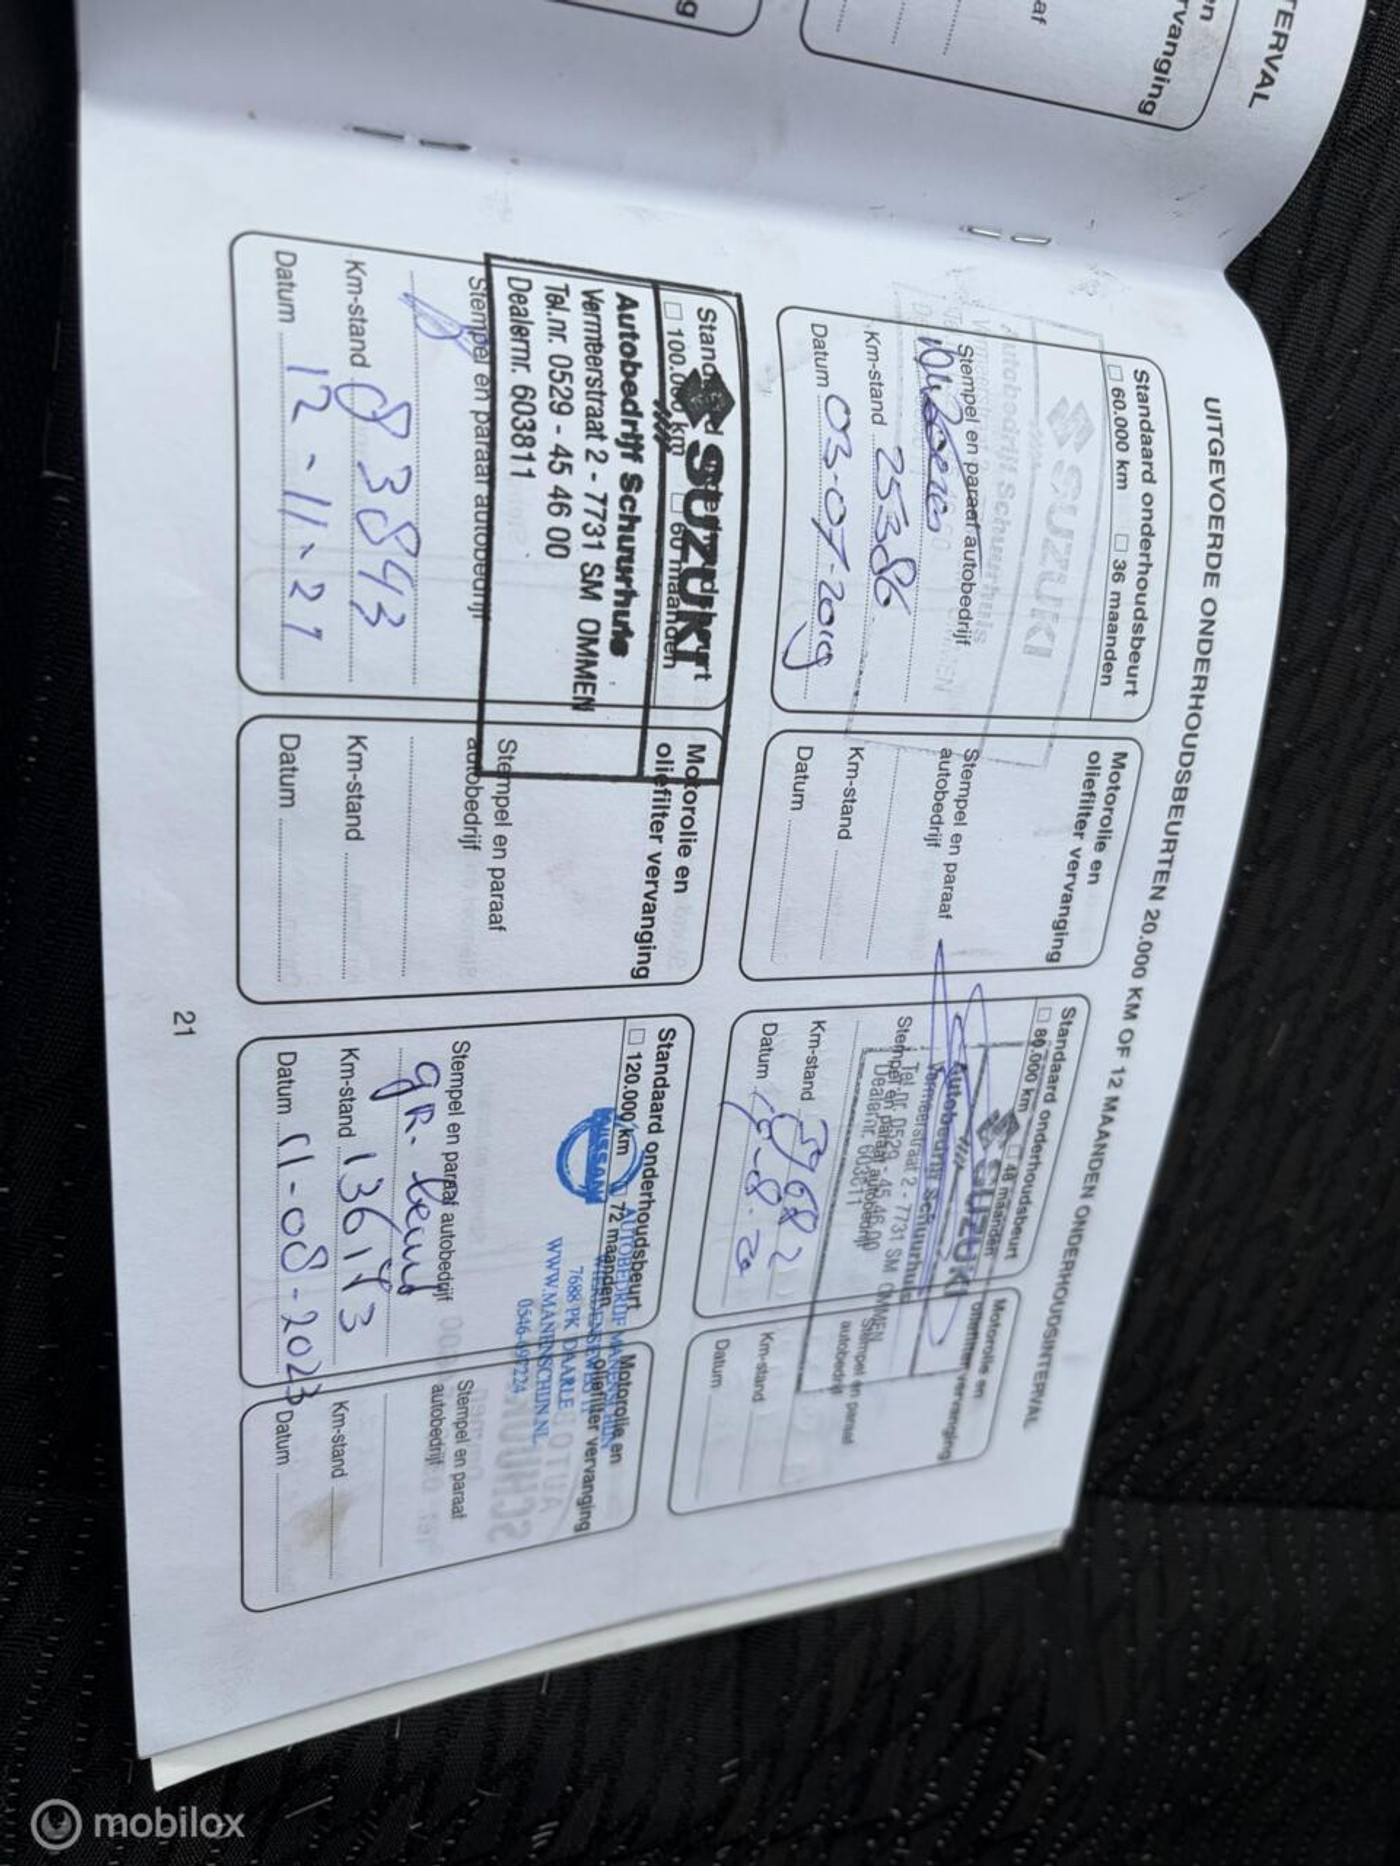 TERVAL
en
rvanging
af
g
UITGEVOERDE ONDERHOUDSBEURTEN 20.000 KM OF 12 MAANDEN ONDERHOUDSINTERVAL
Standaard onderhoudsbeurt
□ 60.000 km □ 36 maanden
SUZUKI
Autobedrijf Schuurhuis
Stempel en paraaf autobedrijf
Km-stand 25386
Datum 03-07-2019
Motorolie en
oliefilter vervanging
Stempel en paraaf
autobedrijf
Km-stand
Datum
Standaard onderhoudsbeurt
□ 80.000 km □ 48 maanden
SUZUKI
Autobedrijf Schuurhuis
Vermeerstraat 2 - 7731 SM OMMEN
Tel.nr. 0529 - 45 46 00
Dealernr. 603811
Stempel en paraaf autobedrijf
Km-stand
Datum
Motorolie en
oliefilter vervanging
Stempel en paraaf
autobedrijf
Km-stand
Datum
Standaard onderhoudsbeurt
□ 100.000 km □ 60 maanden
SUZUKI
Autobedrijf Schuurhuis
Vermeerstraat 2 - 7731 SM OMMEN
Tel.nr. 0529 - 45 46 00
Dealernr. 603811
Stempel en paraaf autobedrijf
Km-stand 83893
Datum 12-11-21
Motorolie en
oliefilter vervanging
Stempel en paraaf
autobedrijf
Km-stand
Datum
Standaard onderhoudsbeurt
□ 120.000 km □ 72 maanden
NISSAN
AUTOBEDRIJF MANENSCHIJN
7688 PK DAARLE
WWW.MANENSCHIJN.NL
0546-697224
Stempel en paraaf autobedrijf
gr. beurt
Km-stand 136173
Datum 11-08-2023
Motorolie en
oliefilter vervanging
Stempel en paraaf
autobedrijf
Km-stand
Datum
21
mobilox